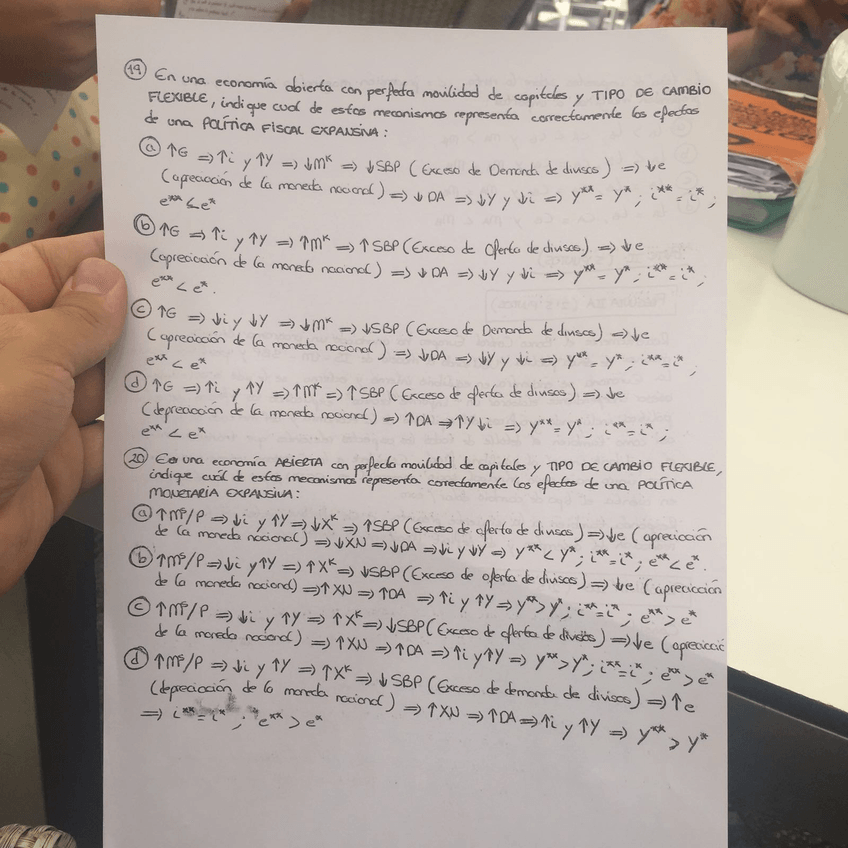 19 En una economía abierta con perfecta movilidad de capitales y TIPO DE CAMBIO
FLEXIBLE, indique cual de estos mecanismos representa correctamente los efectos
de una POLÍTICA FISCAL EXPANSIVA:
a ↑G ⇒ ↑i y ↑Y ⇒ ↓Mᴷ ⇒ ↓SBP (Exceso de Demanda de divisas) ⇒ ↓e
(apreciación de la moneda nacional) ⇒ ↓DA ⇒ ↓Y y ↓i ⇒ Y** = Y*; i** = i*;
e** < e*
b ↑G ⇒ ↑i y ↑Y ⇒ ↑Mᴷ ⇒ ↑SBP (Exceso de Oferta de divisas) ⇒ ↓e
(apreciación de la moneda nacional) ⇒ ↓DA ⇒ ↓Y y ↓i ⇒ Y** = Y*; i** = i*;
e** < e*.
c ↑G ⇒ ↓i y ↓Y ⇒ ↓Mᴷ ⇒ ↓SBP (Exceso de Demanda de divisas) ⇒ ↓e
(apreciación de la moneda nacional) ⇒ ↓DA ⇒ ↓Y y ↓i ⇒ Y** = Y*; i** = i*;
e** < e*
d ↑G ⇒ ↑i y ↑Y ⇒ ↑Mᴷ ⇒ ↑SBP (Exceso de oferta de divisas) ⇒ ↓e
(depreciación de la moneda nacional) ⇒ ↑DA ⇒ ↑Y ↓i ⇒ Y** = Y*; i** = i*;
e** < e*
20 En una economía ABIERTA con perfecta movilidad de capitales y TIPO DE CAMBIO FLEXIBLE,
indique cuál de estos mecanismos representa correctamente los efectos de una POLÍTICA
MONETARIA EXPANSIVA:
a ↑Mˢ/P ⇒ ↓i y ↑Y ⇒ ↓Xᴷ ⇒ ↑SBP (Exceso de oferta de divisas) ⇒ ↓e (apreciación
de la moneda nacional) ⇒ ↓XN ⇒ ↓DA ⇒ ↓i y ↓Y ⇒ Y** < Y*; i** = i*; e** < e*.
b ↑Mˢ/P ⇒ ↓i y ↑Y ⇒ ↑Xᴷ ⇒ ↓SBP (Exceso de oferta de divisas) ⇒ ↓e (apreciación
de la moneda nacional) ⇒ ↑XN ⇒ ↑DA ⇒ ↑i y ↑Y ⇒ Y** > Y*; i** = i*; e** > e*
c ↑Mˢ/P ⇒ ↓i y ↑Y ⇒ ↑Xᴷ ⇒ ↓SBP (Exceso de oferta de divisas) ⇒ ↓e (apreciació
de la moneda nacional) ⇒ ↑XN ⇒ ↑DA ⇒ ↑i y ↑Y ⇒ Y** > Y*; i** = i*; e** > e*
d ↑Mˢ/P ⇒ ↓i y ↑Y ⇒ ↑Xᴷ ⇒ ↓SBP (Exceso de demanda de divisas) ⇒ ↑e
(depreciación de la moneda nacional) ⇒ ↑XN ⇒ ↑DA ⇒ ↑i y ↑Y ⇒ Y** > Y*
⇒ i** = i*; e** > e*